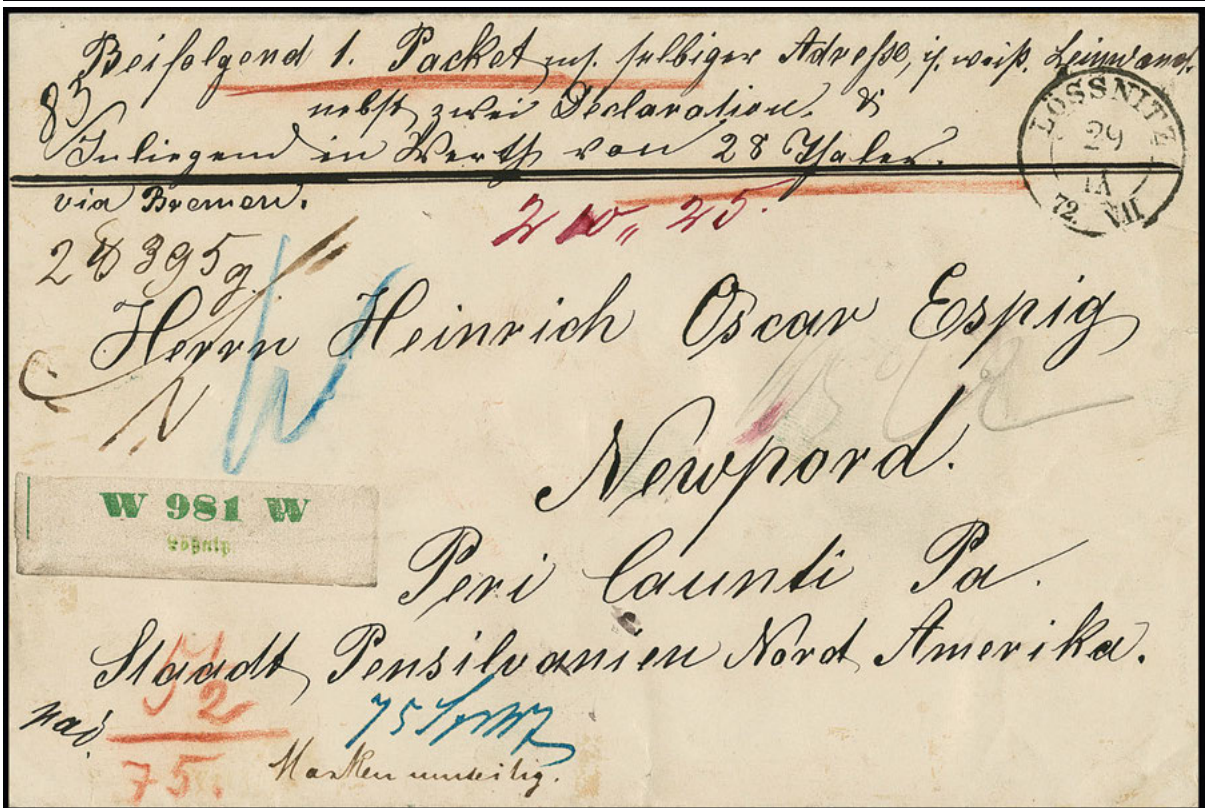 Beifolgend 1. Packet mit selbiger Adresse, i. weiß. Leinwand.
83
nebst zwei Declaration. &
Inliegend in Werth von 28 Thaler.
LÖSSNITZ
29
IX
72. VII
via Bremen.
2 10 „ 25.
395 g.
Herrn Heinrich Oscar Espig
N
W
Newpord.
W 981 W
Lößnitz
Peri Caunti Pa.
Staadt Pensilvanien Nord Amerika.
2
75
75.
Marken umseitig.